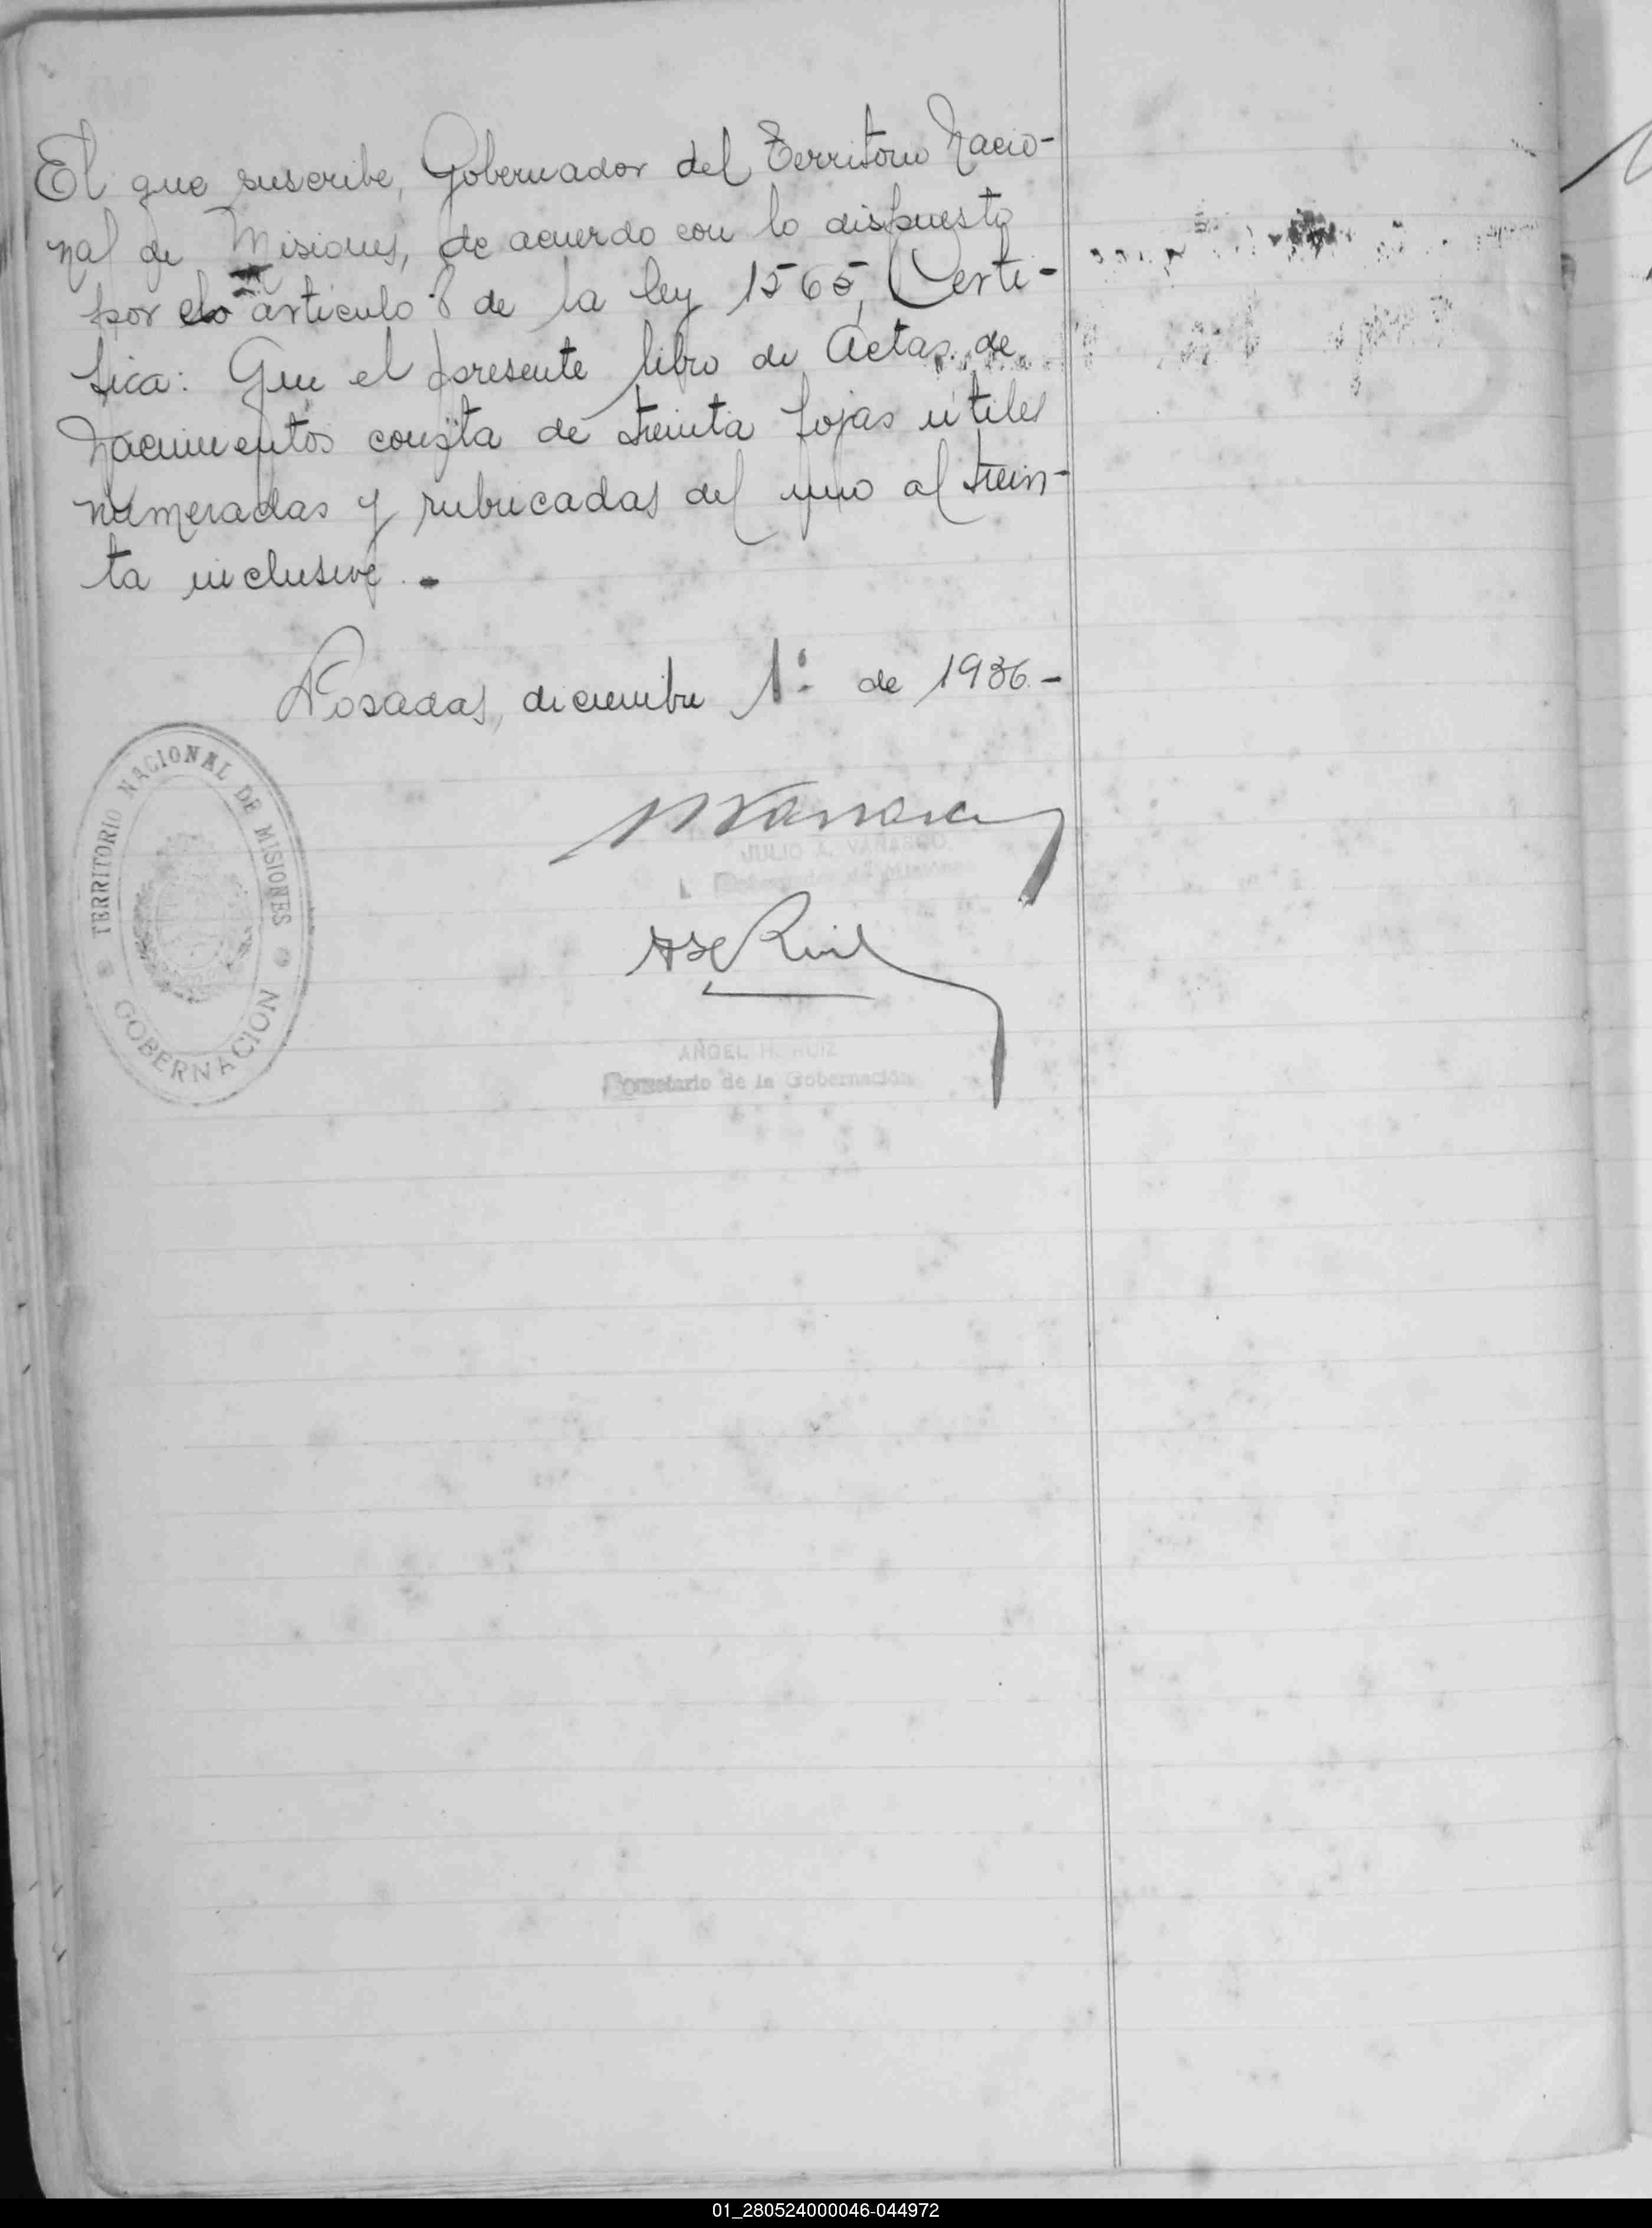 El que suscribe, Gobernador del Territorio Nacio-
nal de Misiones, de acuerdo con lo dispuesto
por el artículo 8 de la ley 1565, Certi-
fica: Que el presente libro de Actas de
Nacimientos consta de treinta fojas útiles
numeradas y rubricadas del uno al trein-
ta inclusive.-
Posadas, diciembre 1º de 1936.-
TERRITORIO NACIONAL DE MISIONES
GOBERNACION
JULIO A. VANASCO
Gobernador de Misiones
ANGEL H. RUIZ
Secretario de la Gobernación
01_280524000046-044972